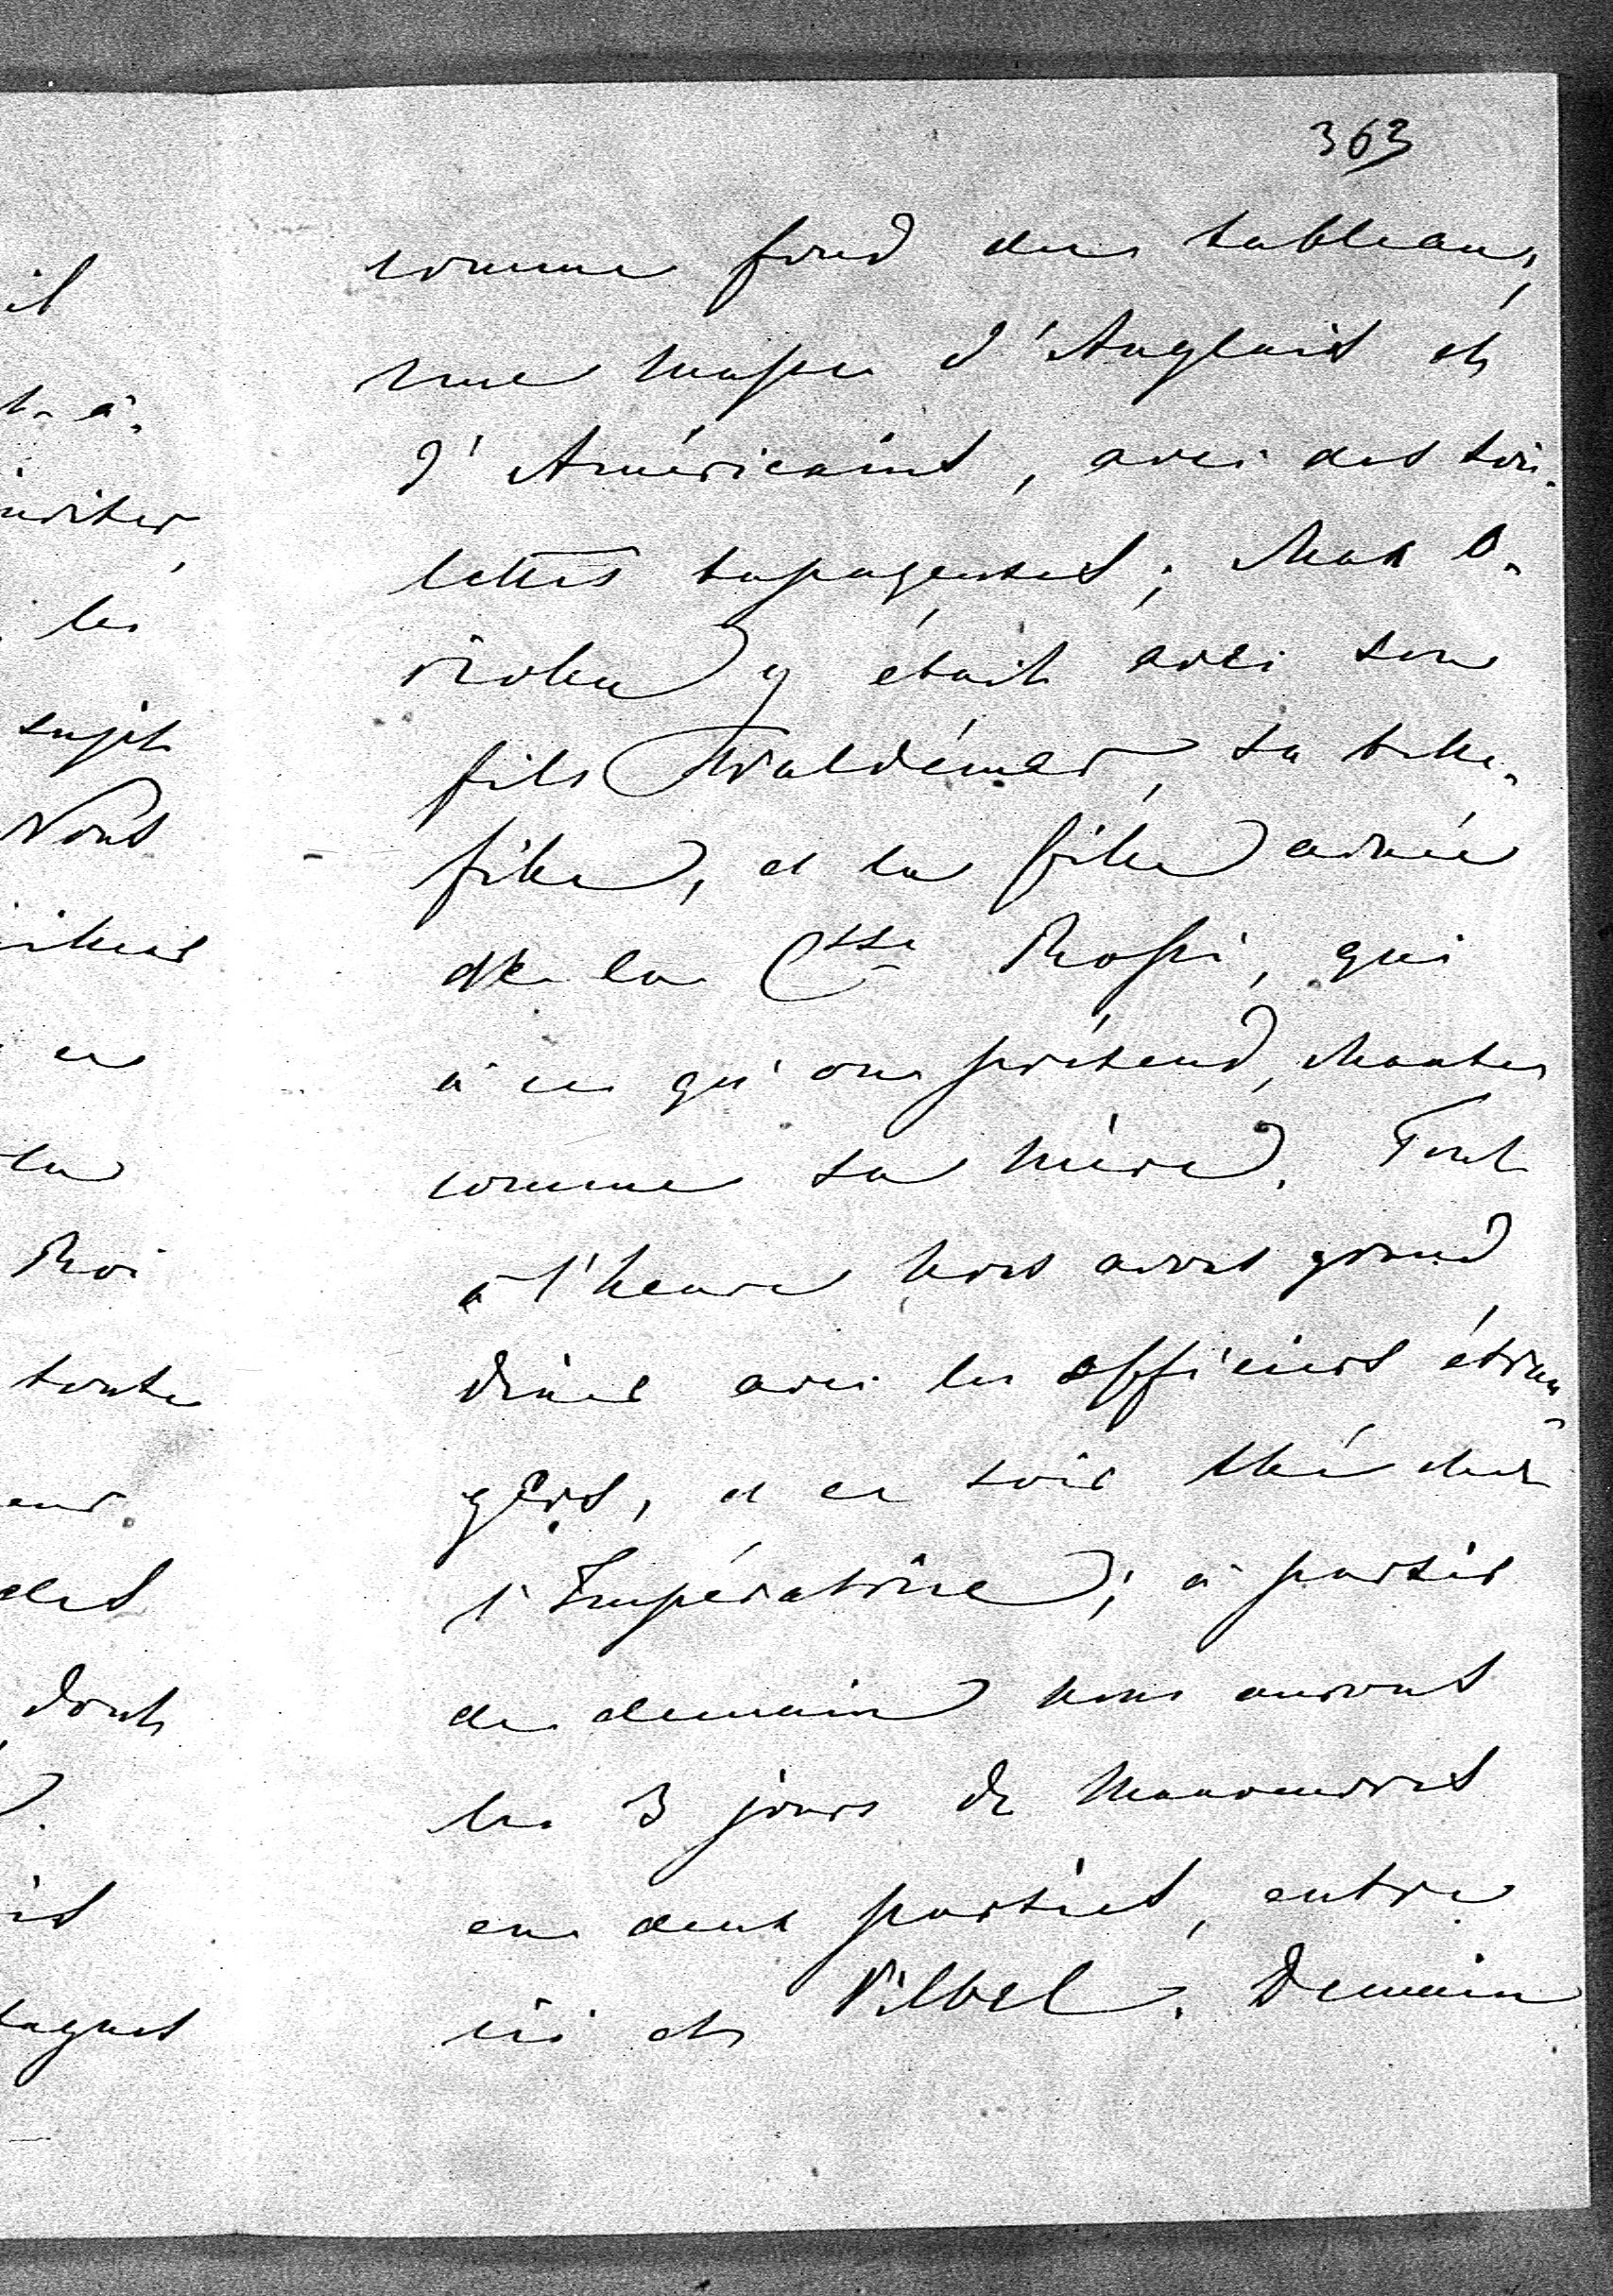 363
comme fond du tableau,
une masse d'Anglais et
d'Américains, avec des toi-
lettes tapageuses; Max O-
riola y était avec son
fils Waldémar, sa belle-
fille, et la fille ainée
de la Csse Rossi, qui
à ce qu'on prétend, chante
comme sa mère. Tout
à l'heure nous avons grand
diner avec les officiers étran-
gers, et ce soir thé chez
l'Impératrice; à partir
de demain nous aurons
les 3 jours de manoeuvres
en deux parties, entre
ici et Vilbel. Demain
il
t-à-
les
sujet
Vous
en
la
Roi
toute
des
dont